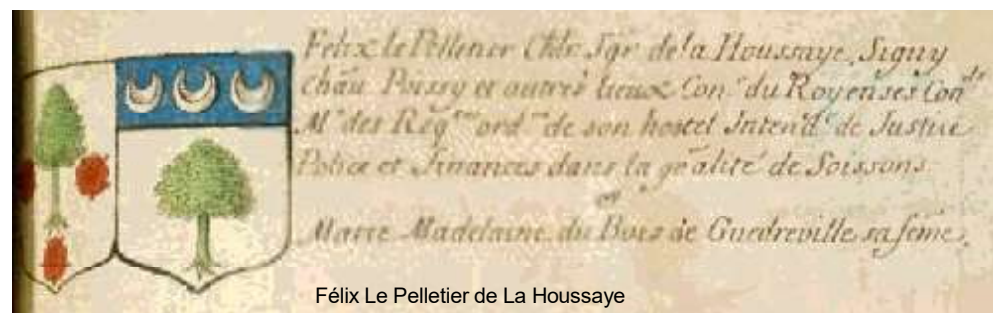 Felix le Pelletier Chlr. Sgr. de la Houssaye, Signy
châu Poissy et autres lieux Con.r du Roy en ses Con.ls
M.e des Req.tes ord.re de son hostel Intend.t de Justice
Police et Finances dans la gñalité de Soissons
et
Marie Madelaine du Bois de Guedreville sa feme.
Félix Le Pelletier de La Houssaye